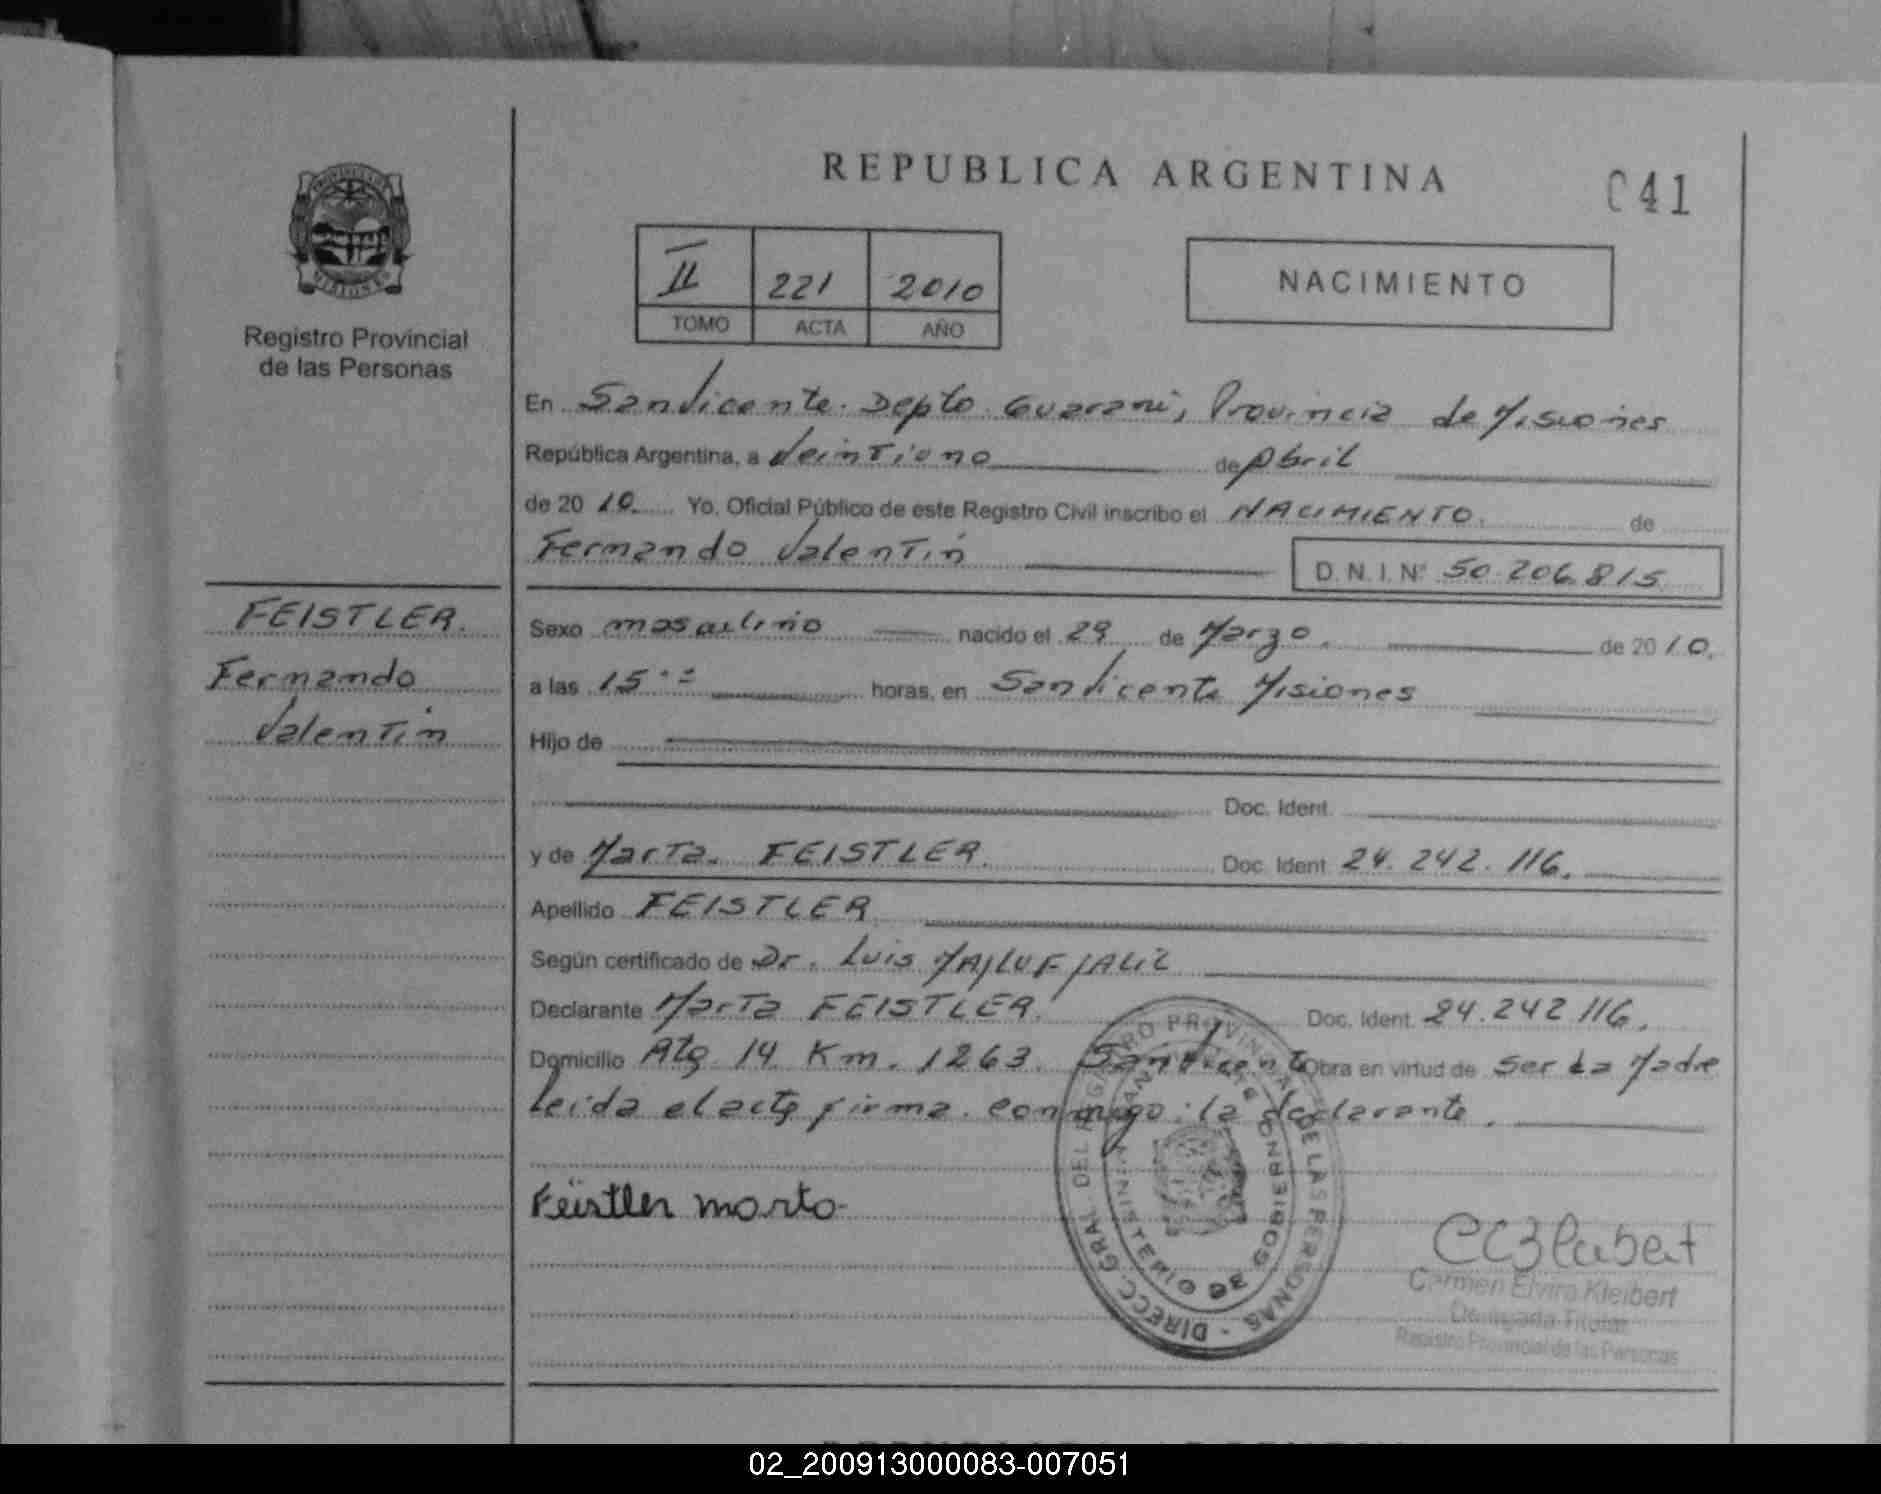 REPUBLICA ARGENTINA
041
II 221 2010
TOMO ACTA AÑO
NACIMIENTO
Registro Provincial
de las Personas
En San Vicente. Depto. Guarani, Provincia de Misiones
República Argentina, a Veintiuno de Abril
de 20 10. Yo, Oficial Público de este Registro Civil inscribo el NACIMIENTO. de
Fernando Valentin D.N.I.Nº 50.206.815
FEISTLER.
Fernando
Valentin
Sexo masculino nacido el 29 de Marzo. de 20 10.
a las 15 horas, en San Vicente Misiones
Hijo de
Doc. Ident.
y de Marta. FEISTLER. Doc. Ident. 24.242.116.
Apellido FEISTLER
Según certificado de Dr. Luis MAJLUF JALIL
Declarante Marta FEISTLER. Doc. Ident. 24.242.116.
Domicilio 14 Km. 1263. San Vicente Obra en virtud de ser La Madre
Leida el acta firma conmigo: la declarante.
Feistler marta
Carmen Elvira Kleibert
Delegada Titular
Registro Provincial de las Personas
DIRECC. GRAL. DEL REGISTRO PROVINCIAL DE LAS PERSONAS
MINISTERIO DE GOBIERNO
02_200913000083-007051